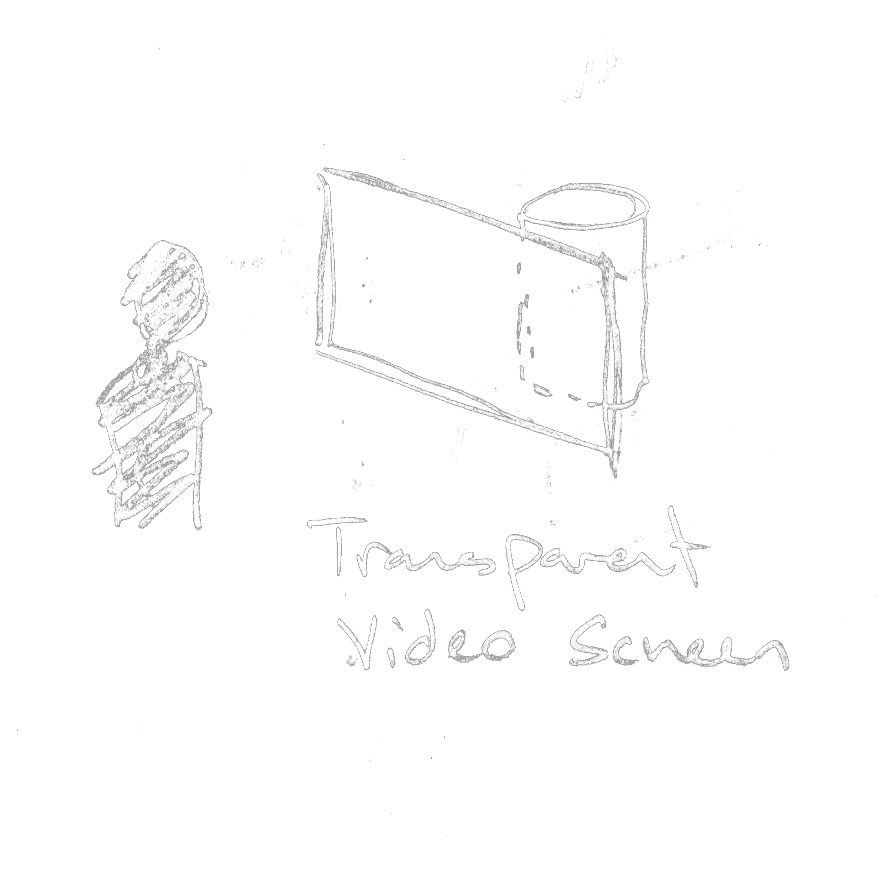 Transparent
Video Screen